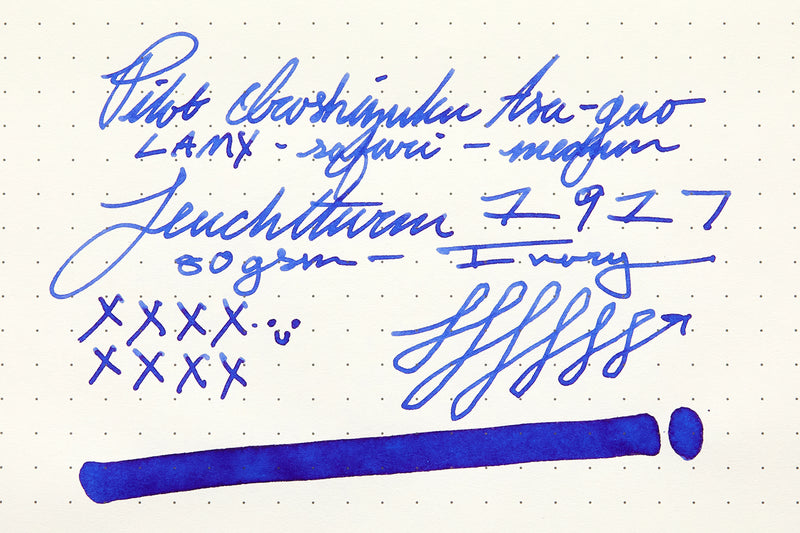 Pilot Iroshizuku Asa-gao
LAMY - safari - medium
Leuchtturm 1917
80gsm - Ivory
XXXX
XXXX